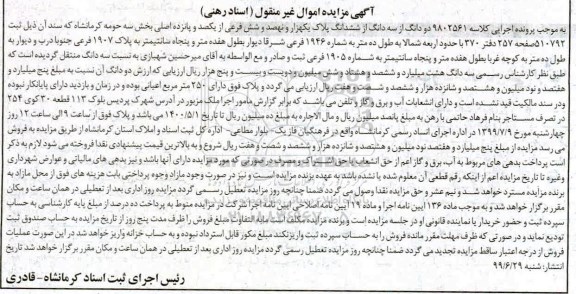 آگهی مزایده اموال غیر منقول (اسناد رهنی)
به موجب پرونده اجرایی کلاسه ۹۸۰۲۵۶۱ دو دانگ از سه دانگ از ششدانگ پلاک یکهزار و نهصد و شش فرعی از یکصد و پانزده اصلی بخش سه حومه کرمانشاه که سند آن ذیل ثبت
۵۱۰۷۹۲ صفحه ۲۵۷ دفتر ۳۷۰ با حدود اربعه شمالا به طول ده متر به شماره ۱۹۴۶ فرعی شرقا دیوار بطول هفده متر و پنجاه سانتیمتر به پلاک ۱۹۰۷ فرعی جنوبا درب و دیوار به
طول ده متر به کوچه غربا بطول هفده متر و پنجاه سانتیمتر به شماره ۱۹۰۵ فرعی ثبت و صادر و مع الواسطه به آقای میرحسین شهبازی به نسبت سه دانگ منتقل گردیده است که
طبق نظر کارشناس رسمی سه دانگ هشت میلیارد و ششصد و هفتاد و شش میلیون و دویست و بیست و پنج هزار ریال ارزیابی که ارزش دو دانگ آن نسبت به مبلغ پنج میلیارد و
هفتصد و نود میلیون و هشتصد و شانزده هزار و ششصد و شصت و هفت ریال ارزیابی می گردد و پلاک فوق دارای ۲۵۰ متر مربع اعیانی بوده و در زمان و بازدید دارای پایانکار نبوده
ودر سند مالکیت قید نشده است و دارای انشعابات آب و برق و گاز و تلفن می باشند که برابر گزارش مامور اجرا ملک مزبور در آدرس شهرک پردیس بلوک ۱۱۳ قطعه ۳۰ کوی ۲۵۴
در تصرف مستاجر بنام فرهاد حاتمی با رهن به مبلغ پانصد میلیون ریال و مال الاجاره به مبلغ ده میلیون ریال تا تاریخ ۱۴۰۰/۵/۱ می باشد و پلاک فوق از ساعت ۹ الی ساعت ۱۲ روز
چهارشنبه مورخ ۱۳۹۹/۷/۹ در اداره اجرای اسناد رسمی کرمانشاه واقع در فرهنگیان فاز یک – بلوار مطاعی – اداره کل ثبت اسناد و املاک استان کرمانشاه از طریق مزایده به فروش
می رسد مزایده از مبلغ پنج میلیارد و هفتصد نود میلیون و هشتصد و شانزده هزار و ششصد و شصت و هفت ریال شروع و به بالاترین قیمت پیشنهادی نقدا فروخته می شود لازم به ذکر
است پرداخت بدهی های مربوط به آب، برق و گاز اعم از حق انشعاب یا حق اشتراک و مصرف در صورتی که مورد مزایده دارای آنها باشد و نیز بدهی های مالیاتی و عوارض شهرداری
وغیره تا تاریخ مزایده اعم از اینکه رقم قطعی آن معلوم شده یا نشده باشد به عهده برنده مزایده است و نیز در صورت وجود مازاد وجوه پرداختی بابت هزینه های فوق از محل مازاد به
برنده مزایده مسترد خواهد شد و نیم عشر و حق مزایده نقدا وصول می گردد ضمنا چنانچه روز مزایده تعطیل رسمی گردد مزایده روز اداری بعد از تعطیلی در همان ساعت و مکان
مقرر برگزار خواهد شد و به موجب ماده ۱۳۶ آیین نامه اجرا و ماده ۱۹ آیین نامه اصلاحی آیین نامه اجرا شرکت در مزایده منوط به پرداخت ده درصد از مبلغ پایه کارشناسی به حساب
سپرده ثبت و حضور خریدار یا نماینده قانونی او در جلسه مزایده است و برنده مزایده مکلف است مابه التفاوت مبلغ فروش را ظرف مدت پنج روز از تاریخ مزایده به حساب صندوق ثبت
تودیع نماید و در صورتی که ظرف مهلت مقرر مانده فروش را به حساب سپرده ثبت واریز نکند مبلغ مکور قابل استرداد نبوده و به حساب خزانه واریز خواهد شد در این صورت عملیات
فروش از درجه اعتبار ساقط مزایده تجدید می گردد ضمنا چنانچه روز مزایده تعطیل رسمی گردد مزایده روز اداری بعد از تعطیلی در همان ساعت و مکان مقرر برگزار خواهد شد تاریخ
انتشار: شنبه ۹۹/۶/۲۹
رئیس اجرای ثبت اسناد کرمانشاه – قادری